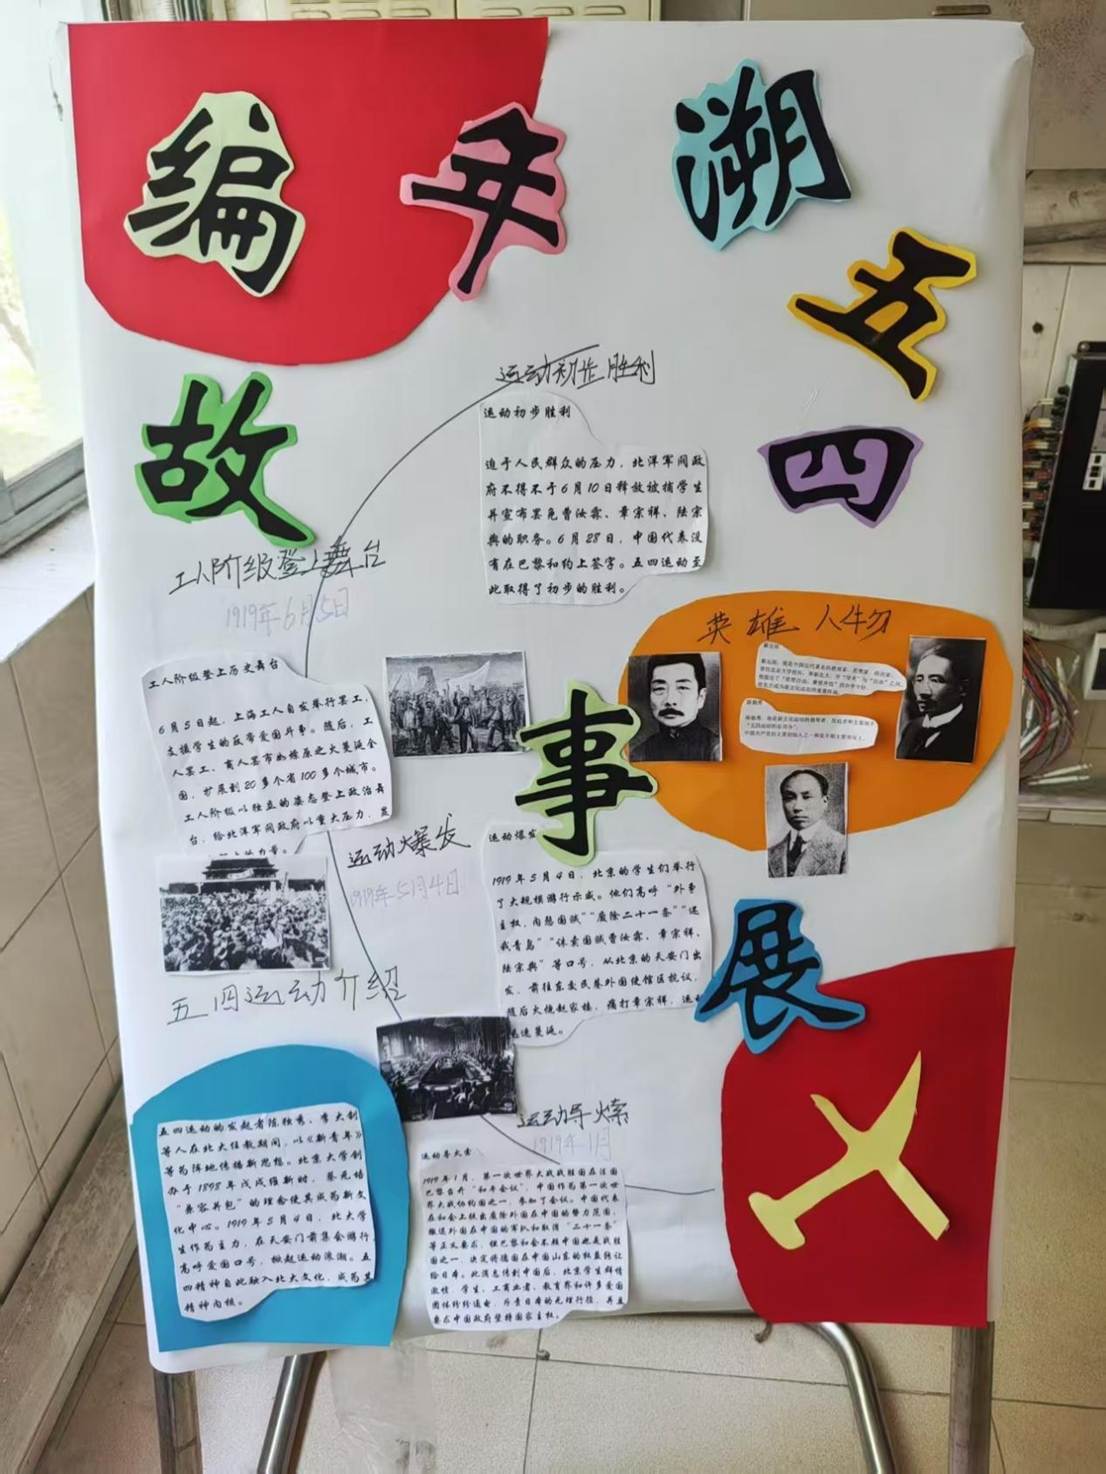 编年溯五四
故事展
运动初步胜利
运动初步胜利
迫于人民群众的压力，北洋军阀政
府不得不于6月10日释放被捕学生
并宣布罢免曹汝霖、章宗祥、陆宗
舆的职务。6月28日，中国代表没
有在巴黎和约上签字。五四运动至
此取得了初步的胜利。
工人阶级登上舞台
1919年6月5日
工人阶级登上历史舞台
6月5日起，上海工人自发举行罢工，
支援学生的反帝爱国斗争。随后，工
人罢工、商人罢市如燎原之火蔓延全
国，扩展到20多个省100多个城市。
工人阶级以独立的姿态登上政治舞
台，给北洋军阀政府以重大压力，
英雄人物
运动爆发
1919年5月4日
运动爆发
1919年5月4日，北京的学生们举行
了大规模游行示威。他们高呼“外争
主权，内惩国贼”“废除二十一条”“还
我青岛”“体卖国贼曹汝霖、章宗祥、
陆宗舆”等口号，从北京的天安门出
发，前往东交民巷外国使馆区抗议，
随后火烧赵家楼，痛打章宗祥，
迅速蔓延。
五四运动介绍
五四运动的发起者陈独秀、李大钊
等人在北大任教期间，以《新青年》
等为阵地传播新思想。北京大学创
办于1898年戊戌维新时，蔡元培
“兼容并包”的理念使其成为新文
化中心。1919年5月4日，北大学
生作为主力，在天安门前集会游行，
高呼爱国口号，掀起运动浪潮。五
四精神自此融入北大文化，成为其
精神内核。
运动导火索
1919年1月
运动导火索
1919年1月，第一次世界大战战胜国在法国
巴黎召开“和平会议”，中国作为第一次世
界大战协约国之一，参加了会议。中国代表
在和会上提出废除外国在中国的势力范围、
撤退外国在中国的军队和取消“二十一条”
等正义要求，但巴黎和会不顾中国也是战胜
国之一，决定将德国在中国山东的权益转让
给日本。此消息传到中国后，北京学生群情
激愤，学生、工商业者、教育界和许多爱国
团体纷纷通电，斥责日本的无理行径，并且
要求中国政府坚持国家主权。